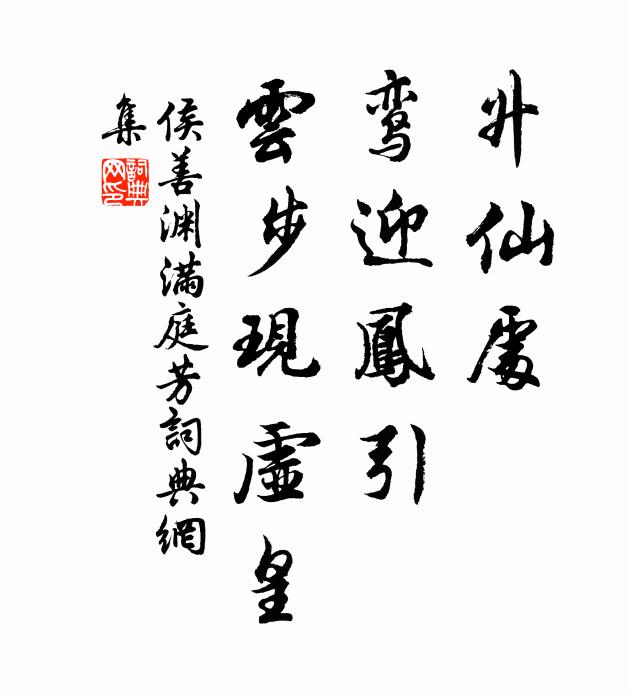 升仙處
鸾迎鳳引
雲步現虛皇
侯善渊滿庭芳詞典網
集
詞典
网印